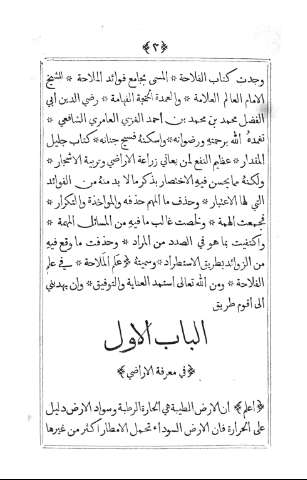 ﴿٢﴾
وجدت كتاب الفلاحة * المسمى بجامع فوائد الملاحة * للشيخ
الامام العالم العلامة * والعمدة الحجة الفهامة * رضي الدين ابي
الفضل محمد بن محمد بن احمد الغزي العامري الشافعي *
تغمده الله برحمته ورضوانه * واسكنه فسيح جنانه * كتاب جليل
المقدار * عظيم النفع لمن يعاني زراعة الاراضي وتربية الاشجار *
ولكنه مما يحسن فيه الاختصار بذكر ما لا بد منه من الفوائد
التي لها الاعتبار * وحذف ما المهم حذفه والمواخذة والتكرار *
فجمعت الهمة * ولخصت غالب ما فيه من المسائل المهمة *
واكتفيت بما هو في الصدد من المراد * وحذفت ما وقع فيه
من الزوائد بطريق الاستطراد * وسميته ﴿علم الملاحة * في علم
الفلاحة * ومن الله تعالى استمد العناية والتوفيق * وان يهديني
الى أقوم طريق
الباب الاول
﴿في معرفة الاراضي﴾
﴿اعلم﴾ ان الارض الطيبة هي الحارة الرطبة وسواد الارض دليل
على الحرارة فان الارض السوداء تحمل الامطار اكثر من غيرها